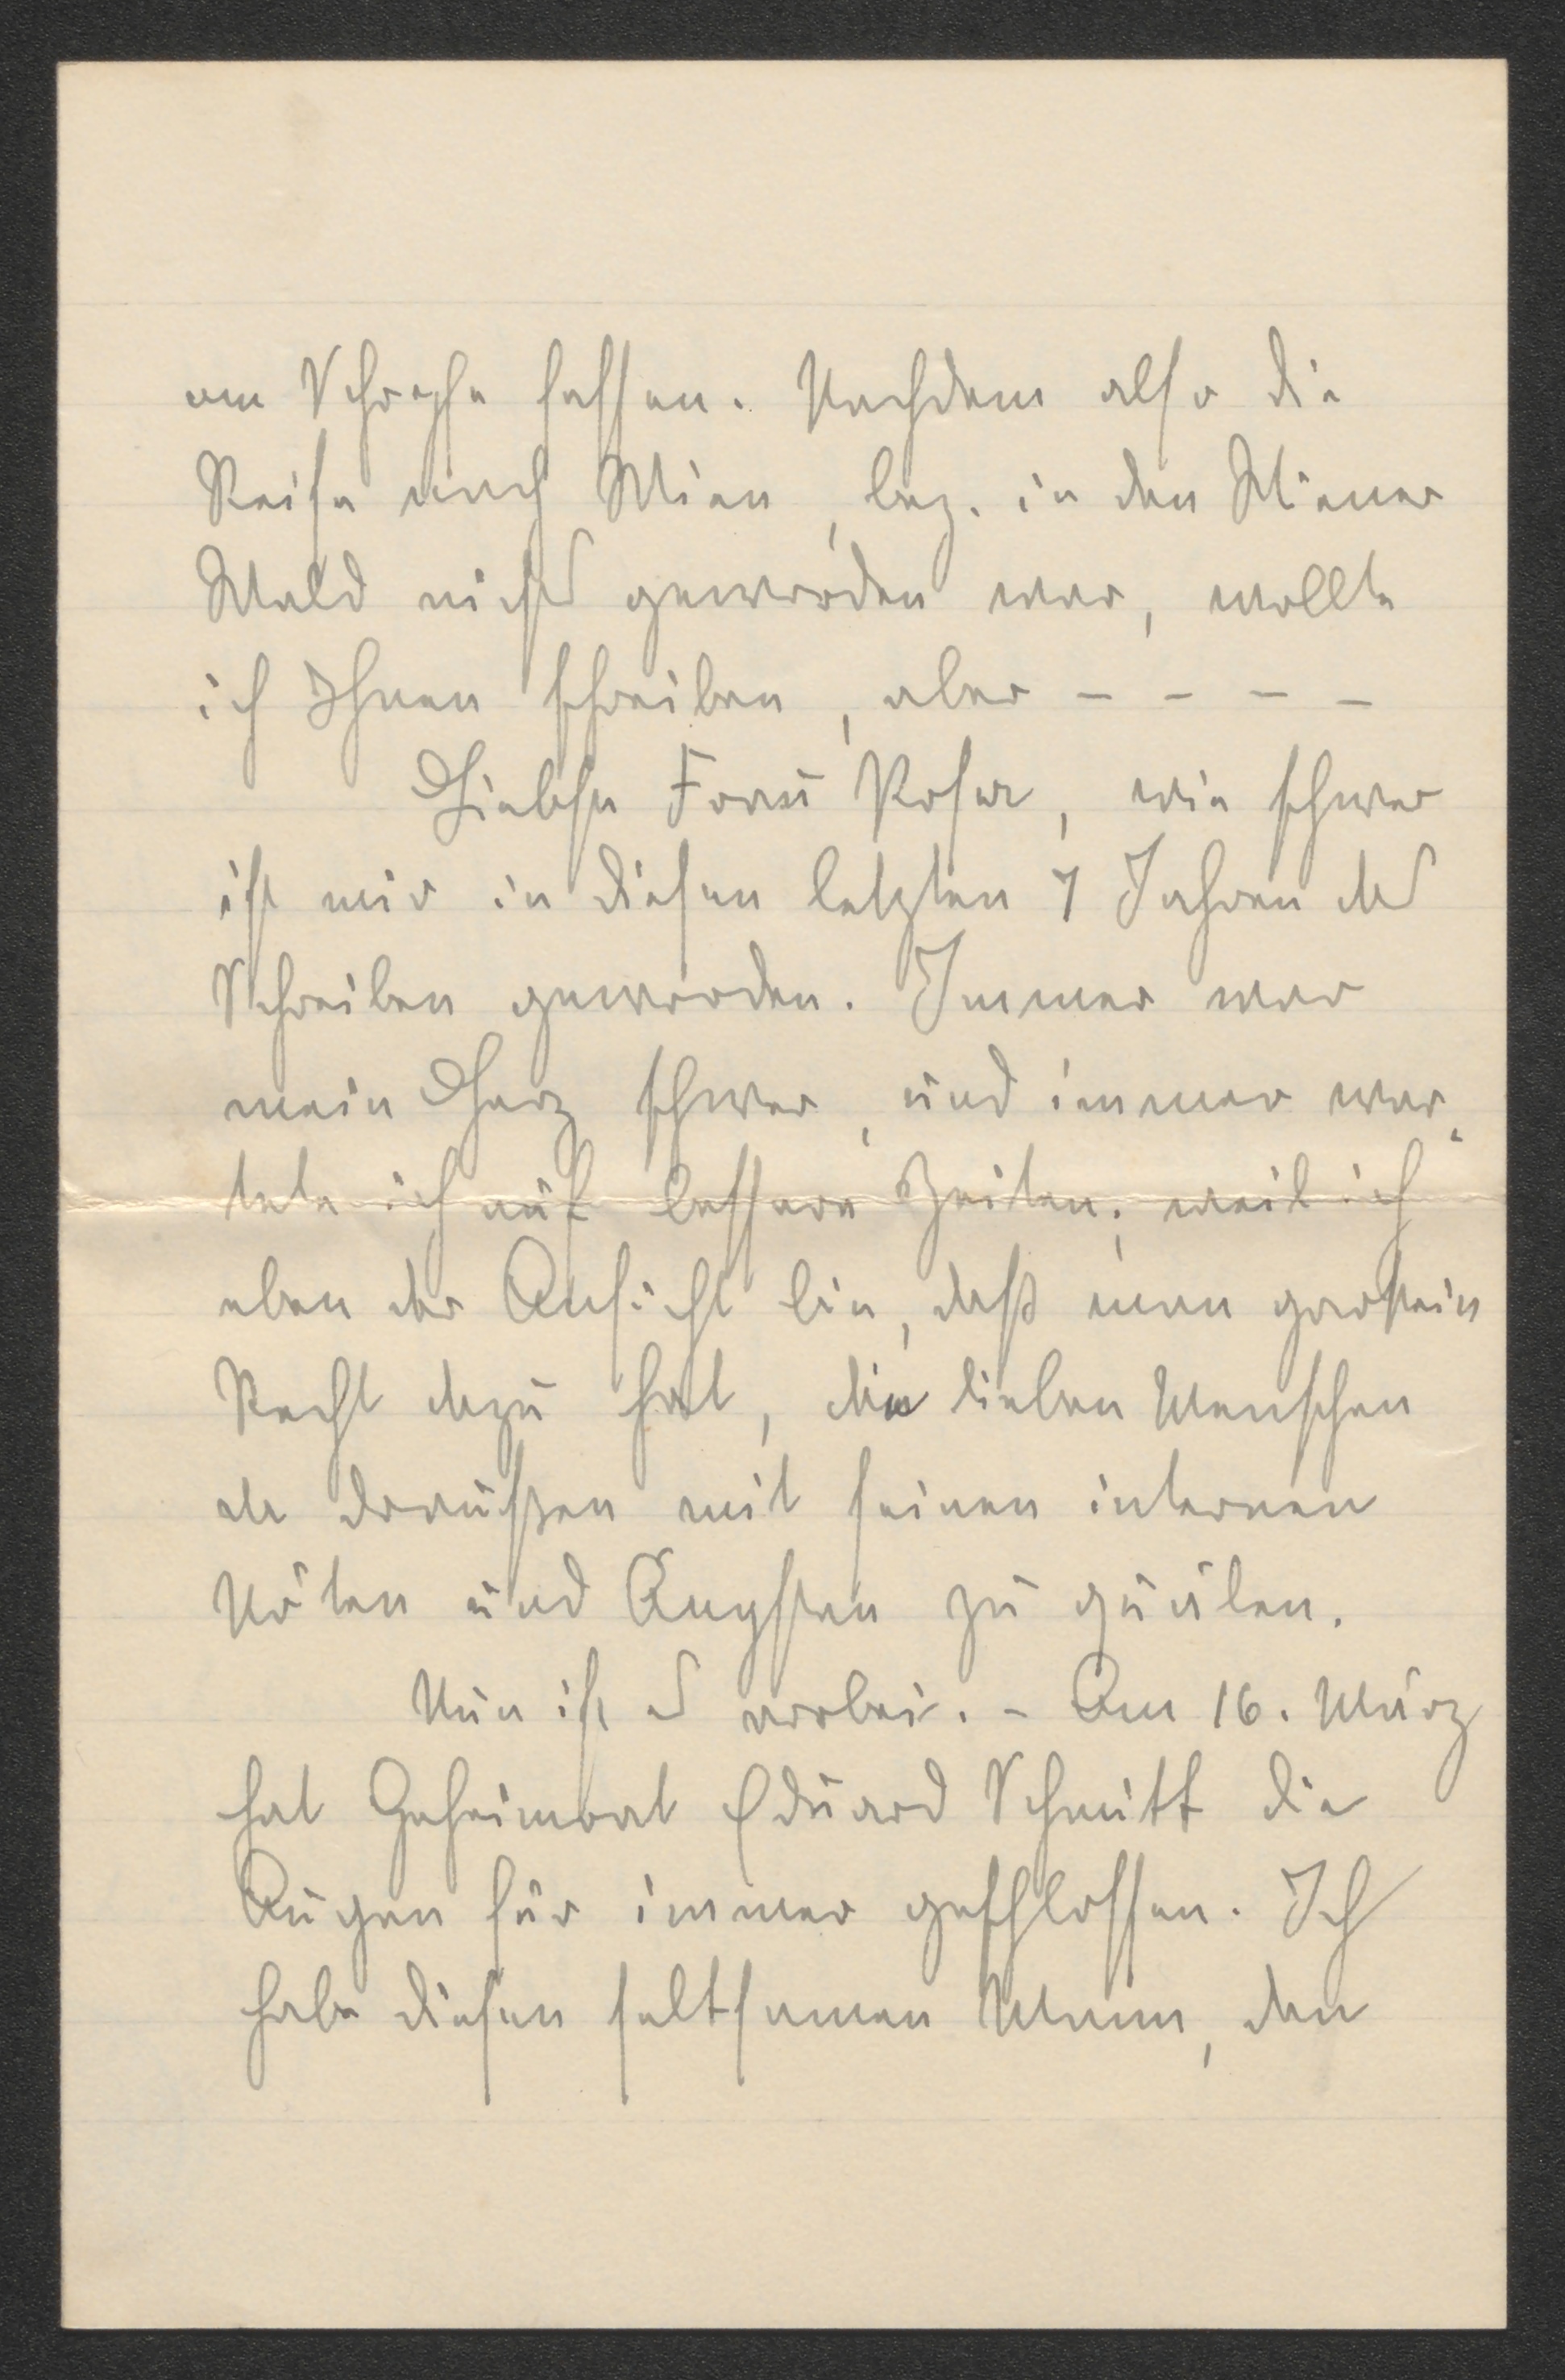 am Schopfe fassen. Nachdem also die
Reise nach Wien, bez. in den Wiener
Wald nichts geworden war, wollte
ich Ihnen schreiben, aber - - - -
Liebste Frau Rosa, wie schwer
ist mir in diesen letzten 7 Jahren das
Schreiben geworden. Immer war
mein Herz schwer, und immer war-
tete ich auf bessere Zeiten, weil ich
eben der Ansicht bin, daß man garkein
Recht dazu hat, die lieben Menschen
da draußen mit seinen internen
Nöten und Ängsten zu quälen.
Nun ist es vorbei. - Am 16. März
hat Geheimrat Eduard Schmitt die
Augen für immer geschlossen. Ich
habe diesen seltsamen Mann, den